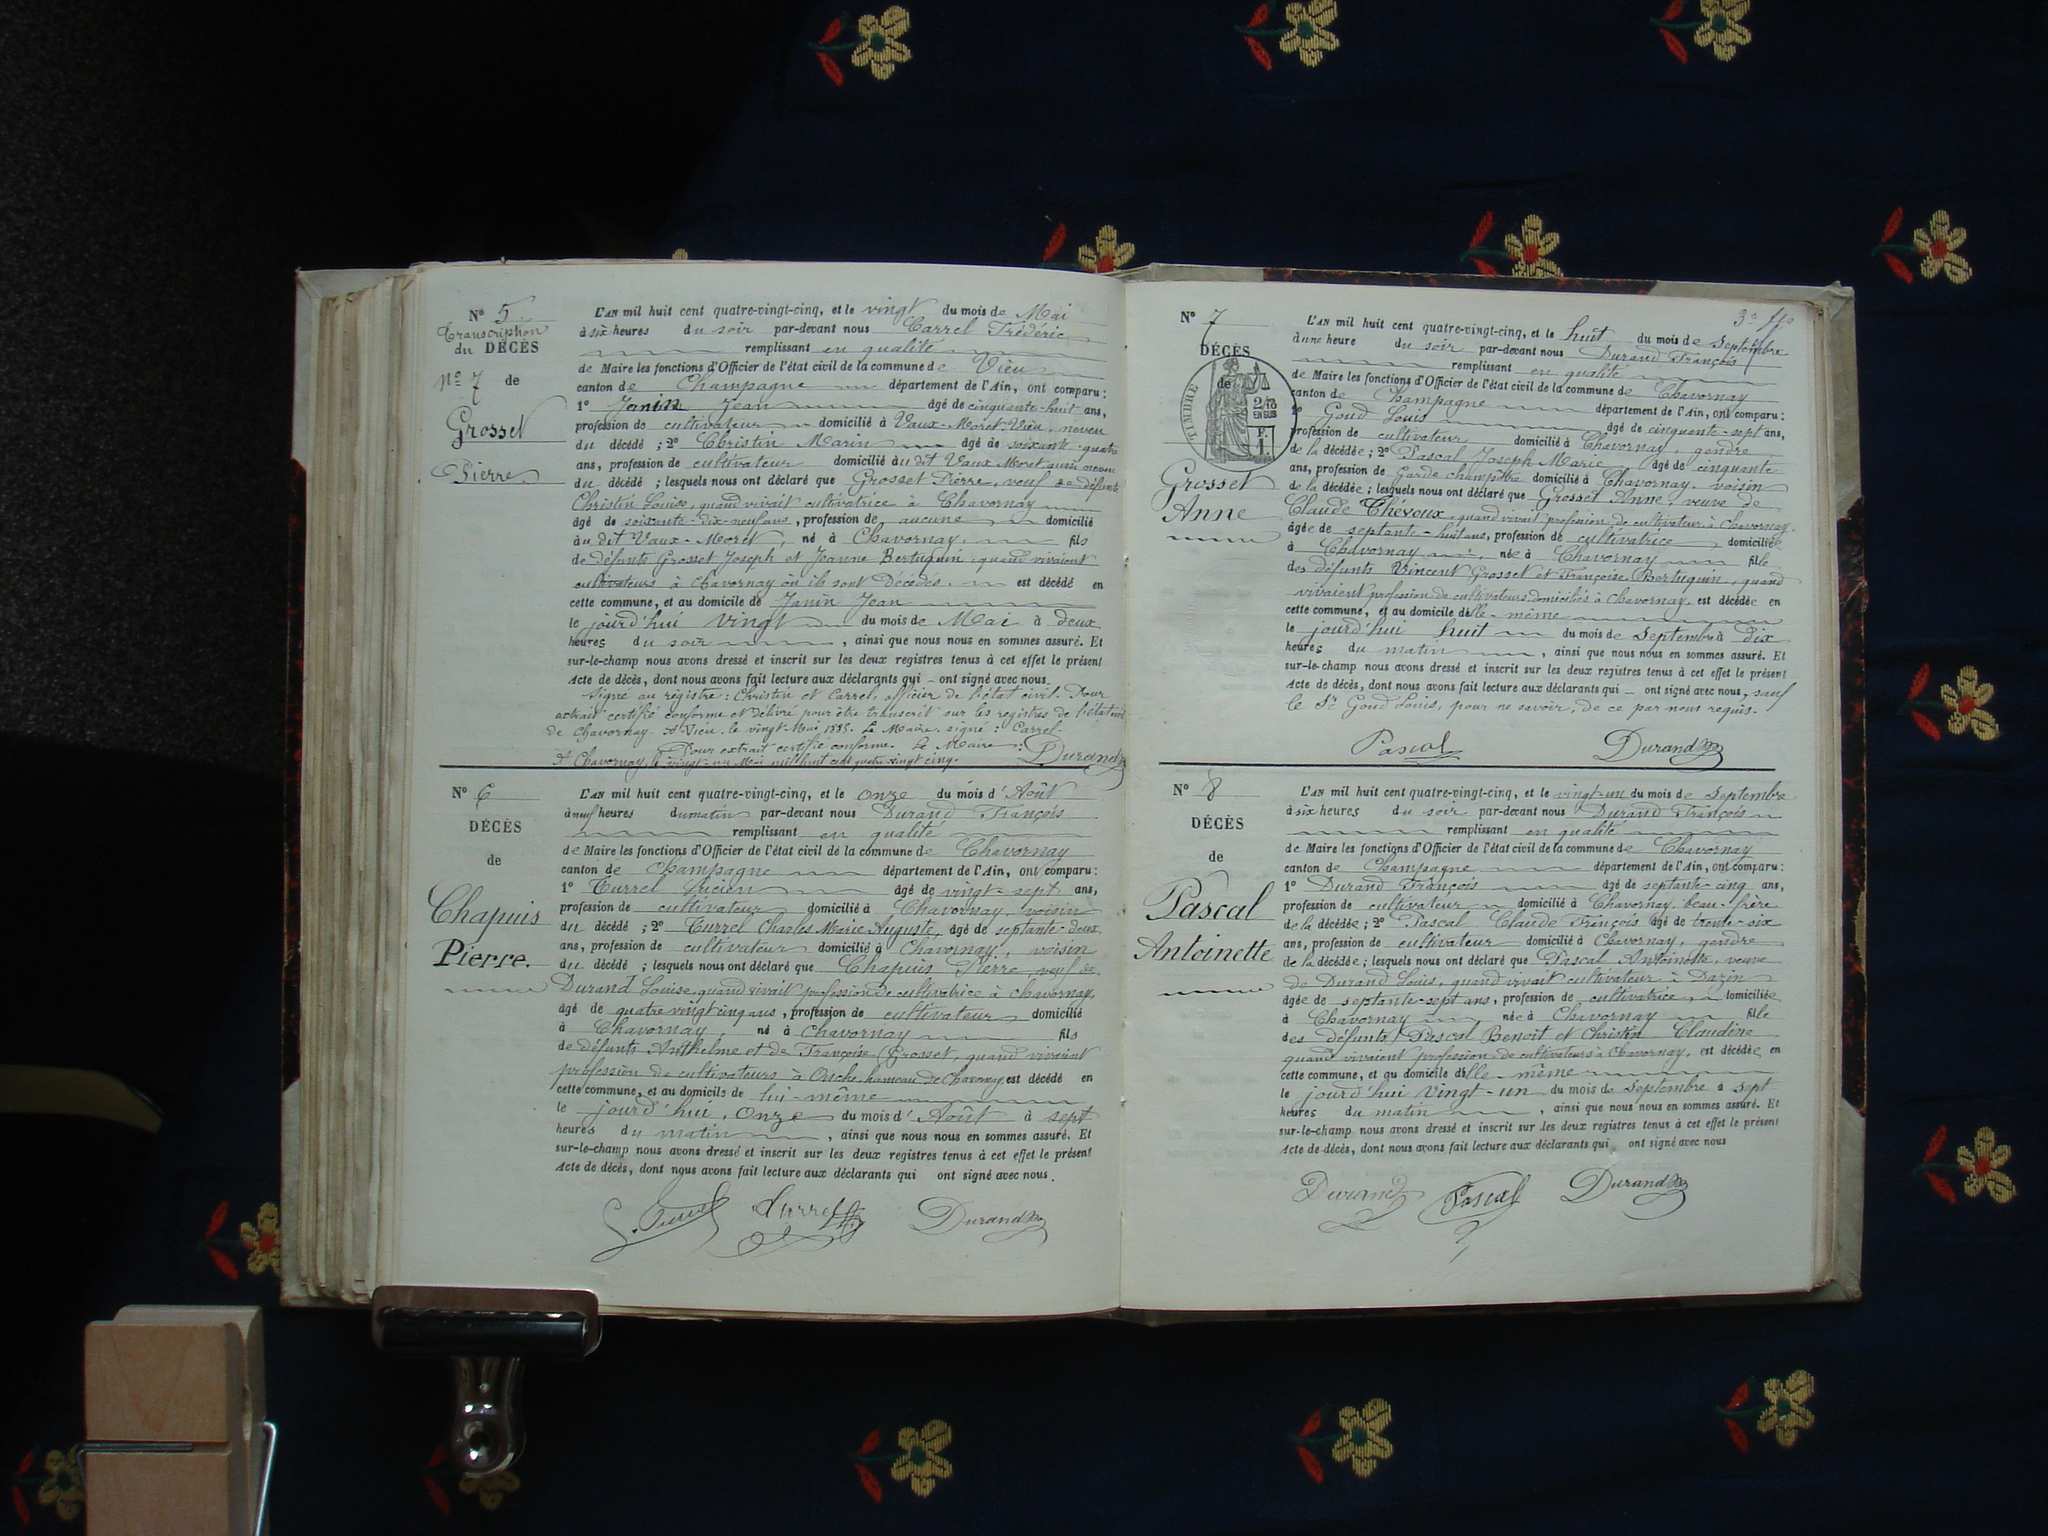 N° 5
Transcription
du DÉCÈS
N° 7 de
Grosset
Pierre
L'AN mil huit cent quatre-vingt-cinq, et le vingt du mois de Mai
à six heures du soir par-devant nous Carrel Frédéric
remplissant en qualité
de Maire les fonctions d'Officier de l'état civil de la commune de Vieu
canton de Champagne département de l'Ain, ont comparu :
1° Janin Jean âgé de cinquante-huit ans,
profession de cultivateur domicilié à Vaux-Moret-Vieu, neveu
du décédé ; 2° Christin Marin âgé de soixante-quatre
ans, profession de cultivateur domicilié au dit Vaux Moret aussi neveu
du décédé ; lesquels nous ont déclaré que Grosset Pierre, veuf de défunte
Christin Louise, quand vivait cultivatrice à Chavornay
âgé de soixante-dix-neuf ans, profession de aucune domicilié
au dit Vaux-Moret, né à Chavornay fils
de défunts Grosset Joseph et Jeanne Bertuquin, quand vivaient
cultivateurs à Chavornay où ils sont décédés. est décédé en
cette commune, et au domicile de Janin Jean
le jourd'hui vingt du mois de Mai à deux
heures du soir, ainsi que nous nous en sommes assuré. Et
sur-le-champ nous avons dressé et inscrit sur les deux registres tenus à cet effet le présent
Acte de décès, dont nous avons fait lecture aux déclarants qui ont signé avec nous.
Signé au registre : Christin et Carrel, officier de l'état civil. Pour
extrait certifié conforme et délivré pour être transcrit sur les registres de l'état civil
de Chavornay. A Vieu, le vingt Mai 1885. Le Maire, signé : Carrel.
Pour extrait certifié conforme. Le Maire :
A Chavornay, le vingt-un Mai mil huit cent quatre vingt cinq. Durand
N° 6
DÉCÈS
de
Chapuis
Pierre.
L'AN mil huit cent quatre-vingt-cinq, et le onze du mois d'Août
à neuf heures du matin par-devant nous Durand François
remplissant en qualité
de Maire les fonctions d'Officier de l'état civil de la commune de Chavornay
canton de Champagne département de l'Ain, ont comparu :
1° Turrel Lucien âgé de vingt-sept ans,
profession de cultivateur domicilié à Chavornay, voisin
du décédé ; 2° Turrel Charles Marie Auguste, âgé de septante-deux
ans, profession de cultivateur domicilié à Chavornay, voisin
du décédé ; lesquels nous ont déclaré que Chapuis Pierre, veuf de
Durand Louise, quand vivait profession de cultivatrice à Chavornay,
âgé de quatre vingt cinq ans, profession de cultivateur domicilié
à Chavornay, né à Chavornay fils
de défunts Anthelme et de Françoise Grosset, quand vivaient
profession de cultivateurs à Ouche, hameau de Chavornay, est décédé en
cette commune, et au domicile de lui-même
le jourd'hui, onze du mois d'Août à sept
heures du matin, ainsi que nous nous en sommes assuré. Et
sur-le-champ nous avons dressé et inscrit sur les deux registres tenus à cet effet le présent
Acte de décès, dont nous avons fait lecture aux déclarants qui ont signé avec nous.
Turrel Durand
3e fo
N° 7
DÉCÈS
de
TIMBRE
2/10
EN SUS
F.
1.
Grosset
Anne
L'AN mil huit cent quatre-vingt-cinq, et le huit du mois de septembre
à une heure du soir par-devant nous Durand François
remplissant en qualité
de Maire les fonctions d'Officier de l'état civil de la commune de Chavornay
canton de Champagne département de l'Ain, ont comparu :
1° Goud Louis âgé de cinquante-sept ans,
profession de cultivateur domicilié à Chavornay, gendre
de la décédée ; 2° Pascal Joseph Marie âgé de cinquante
ans, profession de Garde champêtre domicilié à Chavornay, voisin
de la décédée ; lesquels nous ont déclaré que Grosset Anne, veuve de
Claude Thévoux, quand vivait profession de cultivateur à Chavornay.
âgée de septante-huit ans, profession de cultivatrice domiciliée
à Chavornay, née à Chavornay fille
des défunts Vincent Grosset et Françoise Bertuquin, quand
vivaient profession de cultivateurs domiciliés à Chavornay. est décédée en
cette commune, et au domicile d'elle-même
le jourd'hui huit du mois de septembre à dix
heures du matin, ainsi que nous nous en sommes assuré. Et
sur-le-champ nous avons dressé et inscrit sur les deux registres tenus à cet effet le présent
Acte de décès, dont nous avons fait lecture aux déclarants qui ont signé avec nous, sauf
le Sr Goud Louis, pour ne savoir, de ce par nous requis.
Pascal Durand
N° 8
DÉCÈS
de
Pascal
Antoinette
L'AN mil huit cent quatre-vingt-cinq, et le vingt-un du mois de septembre
à six heures du soir par-devant nous Durand François
remplissant en qualité
de Maire les fonctions d'Officier de l'état civil de la commune de Chavornay
canton de Champagne département de l'Ain, ont comparu :
1° Durand François âgé de septante-cinq ans,
profession de cultivateur domicilié à Chavornay, beau-frère
de la décédée ; 2° Pascal Claude François âgé de trente-six
ans, profession de cultivateur domicilié à Chavornay, gendre
de la décédée ; lesquels nous ont déclaré que Pascal Antoinette, veuve
de Durand Louis, quand vivait cultivateur à Dazin
âgée de septante-sept ans, profession de cultivatrice domiciliée
à Chavornay née à Chavornay fille
des défunts Pascal Benoit et Christin Claudine
quand vivaient profession de cultivateurs à Chavornay, est décédée en
cette commune, et au domicile d'elle-même
le jourd'hui vingt-un du mois de septembre à sept
heures du matin, ainsi que nous nous en sommes assuré. Et
sur-le-champ nous avons dressé et inscrit sur les deux registres tenus à cet effet le présent
Acte de décès, dont nous avons fait lecture aux déclarants qui ont signé avec nous
Durand Pascal Durand